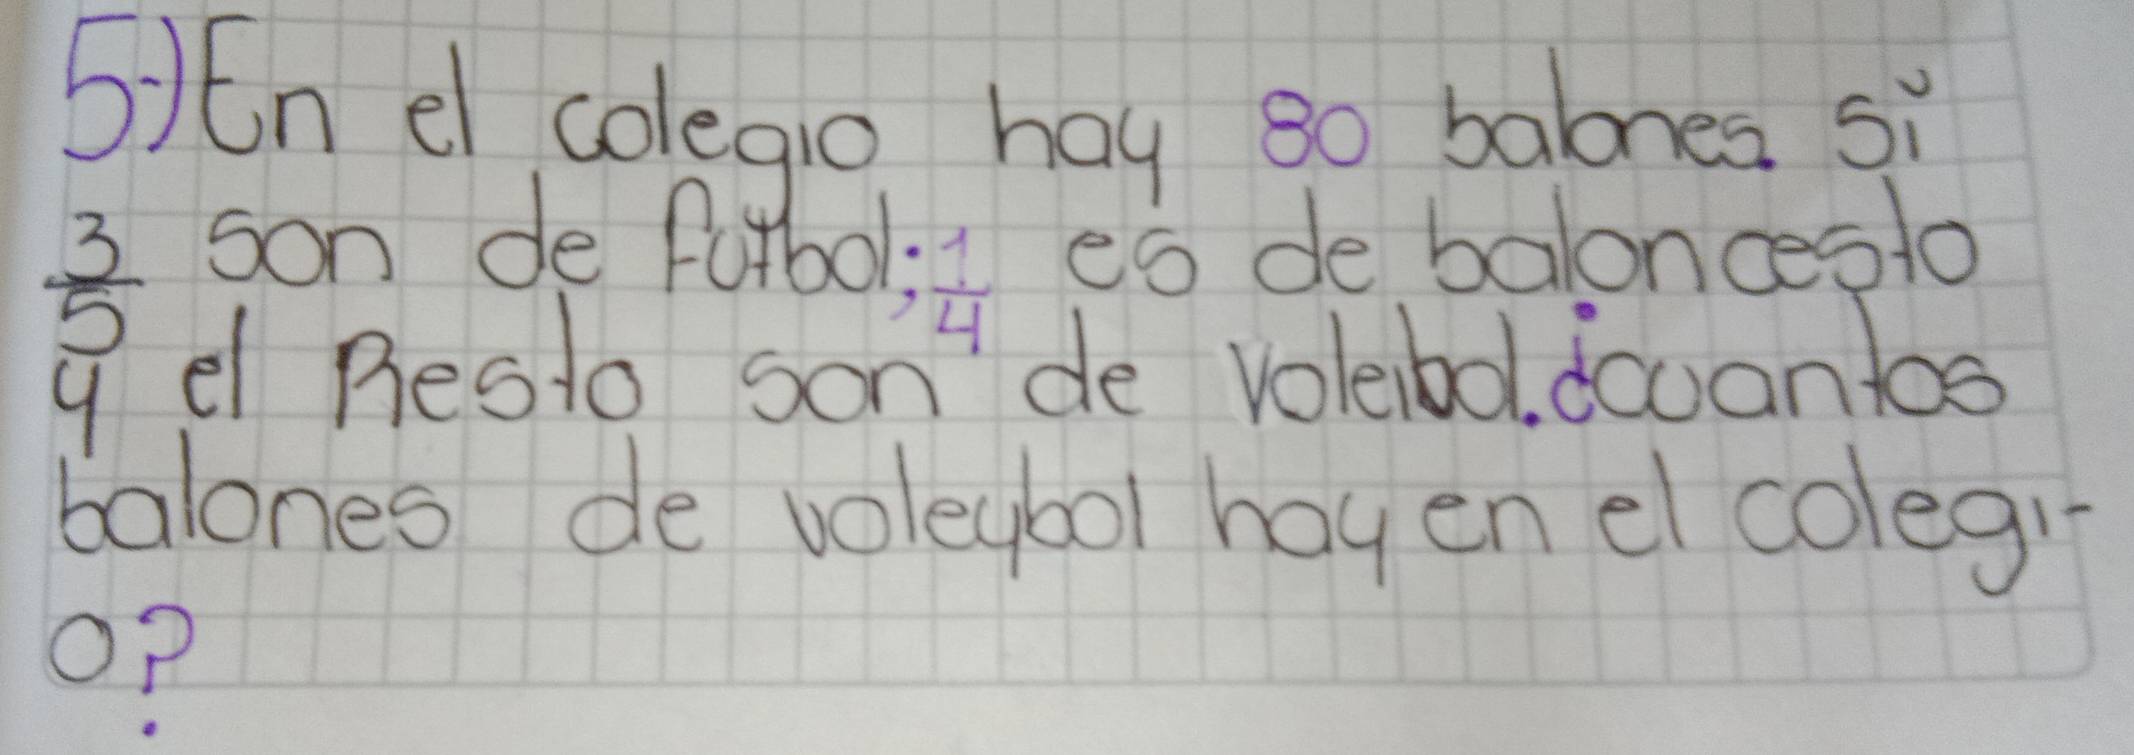 5-) En el colegio hay 80 balones. Si
3/5 son de futbol; 1/4 es de baloncesto
y el Resto son de voleibol. ¿cuantos
balones de voleybol hay en el colegi-
o?